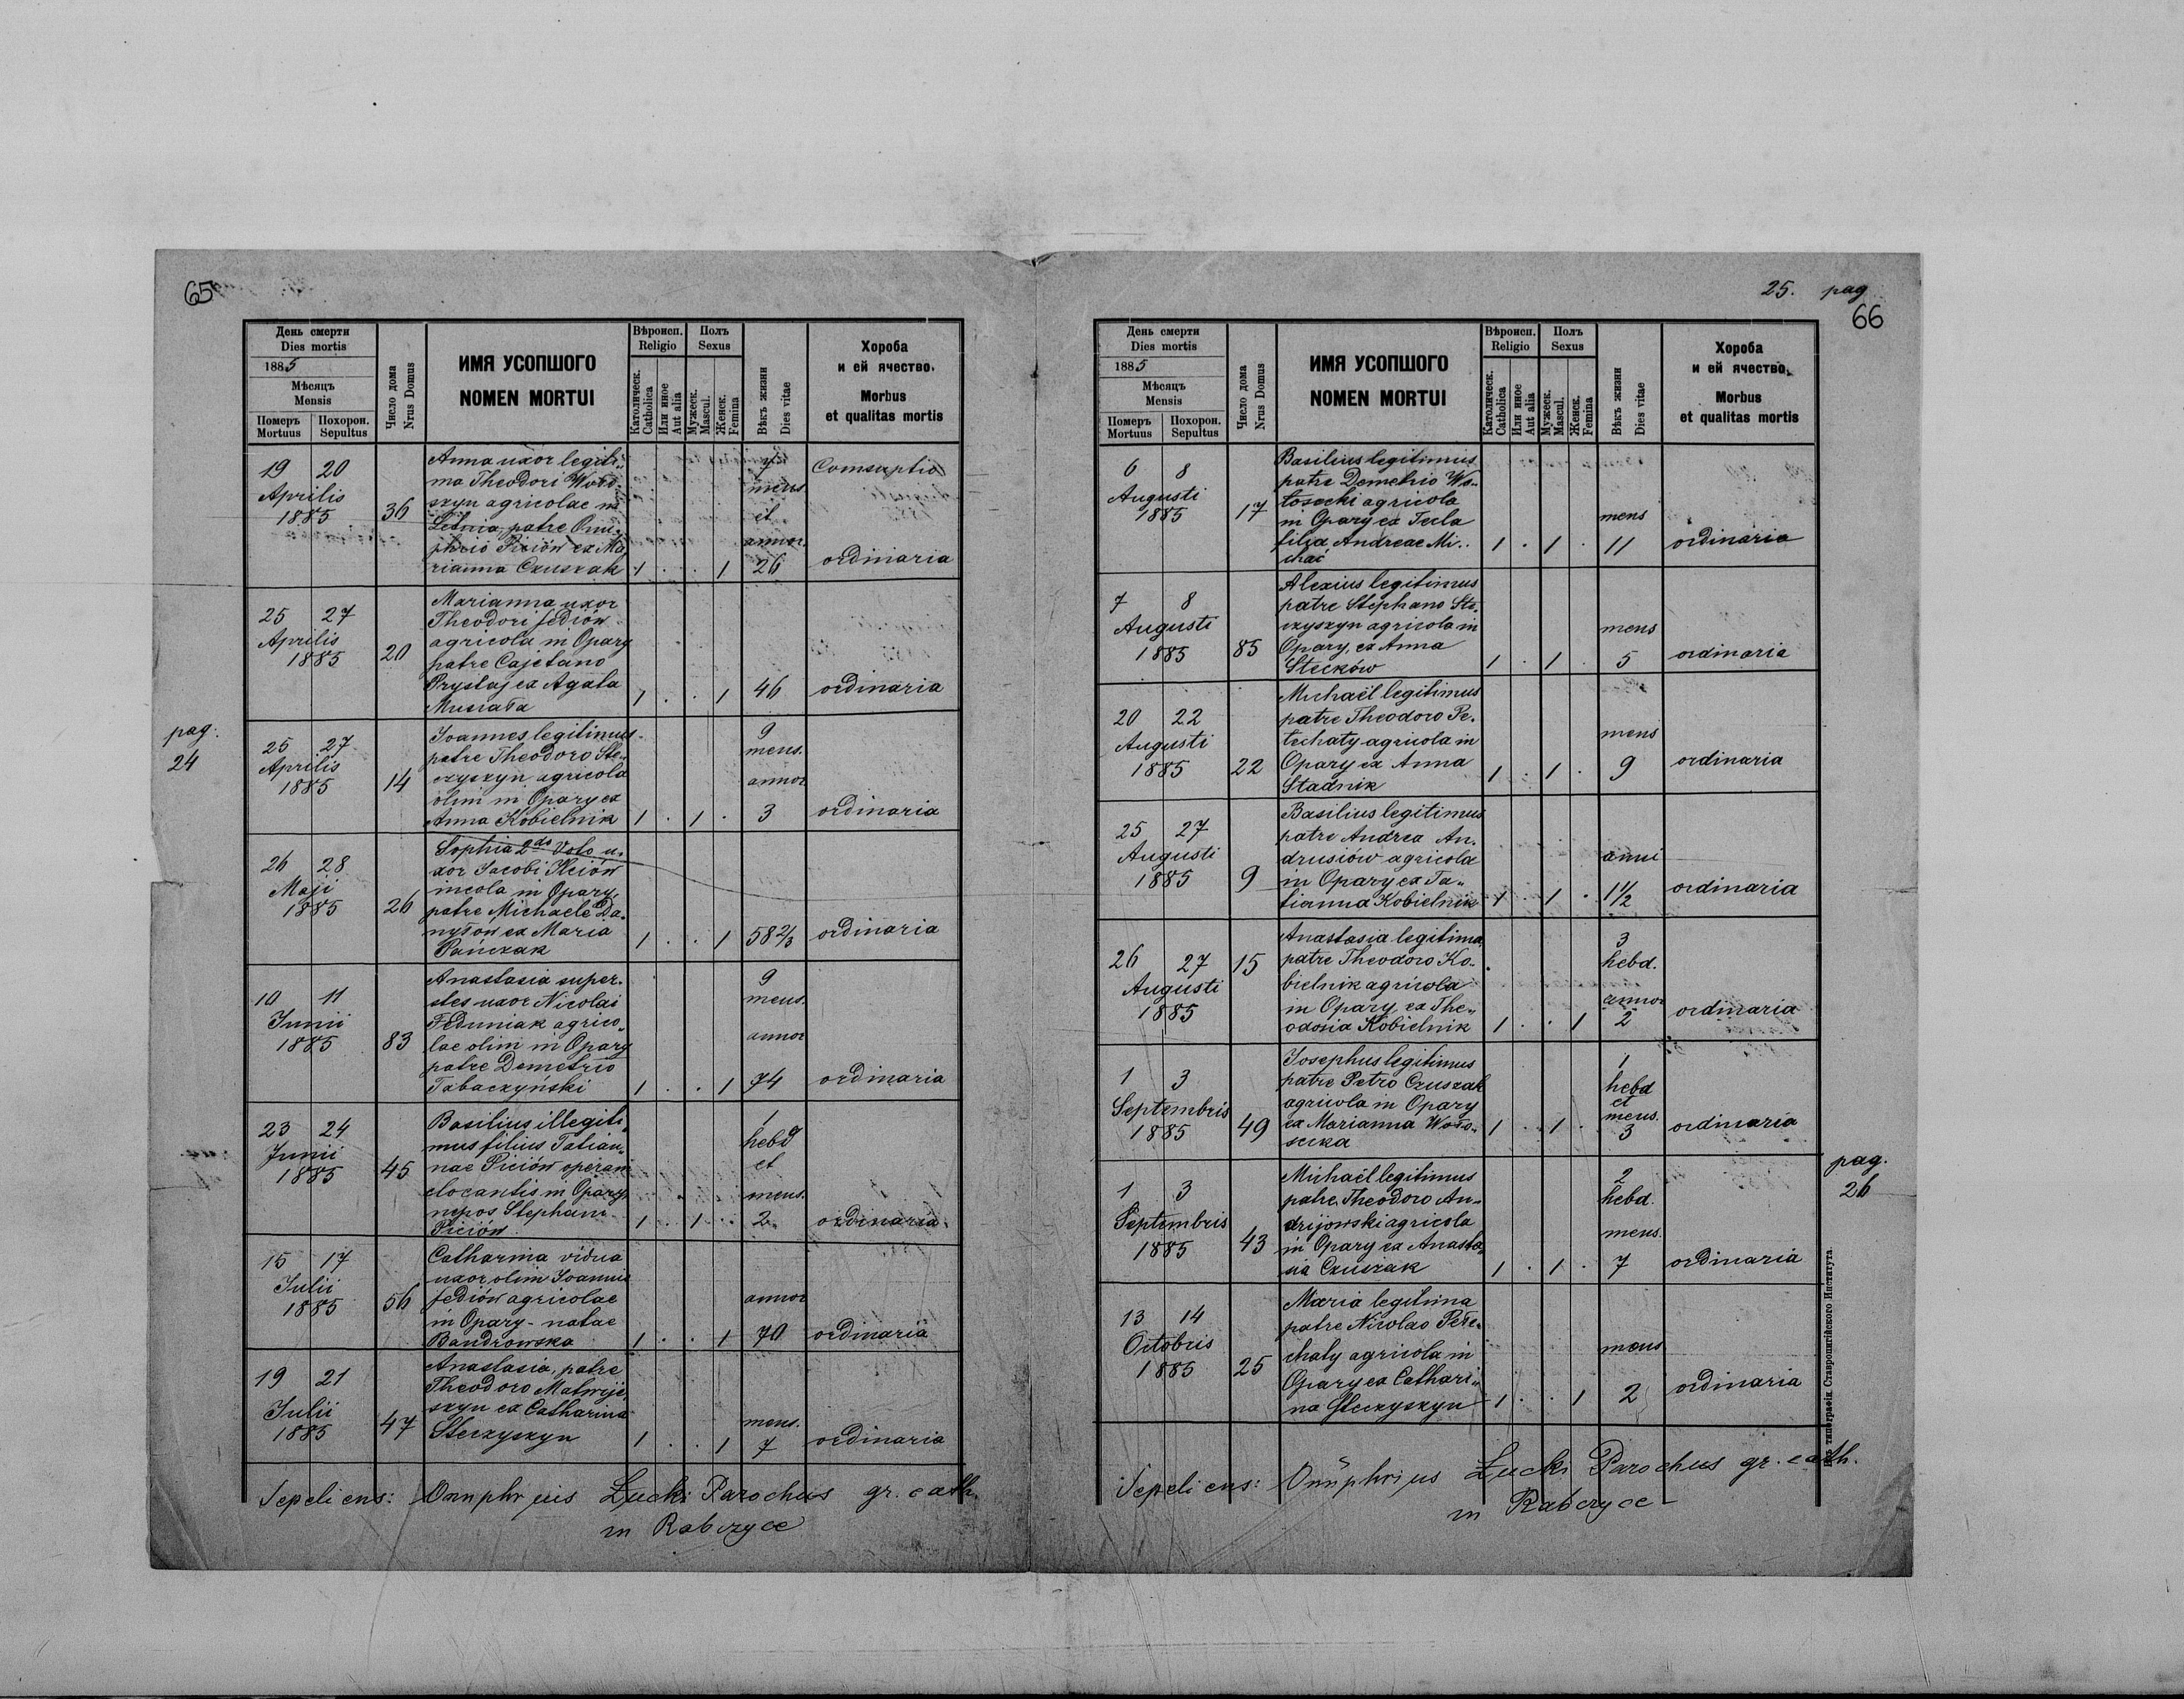 65
День смерти
Dies mortis
1885
Мѣсяцъ
Mensis
Померъ Похорон.
Mortuus Sepultus
Число дома
Nrus Domus
ИМЯ УСОПШОГО
NOMEN MORTUI
Вѣроисп.
Religio
Католическ.
Catholica
Или иное
Aut alia
Полъ
Sexus
Мужеск.
Mascul.
Женск.
Femina
Вѣкъ жизни
Dies vitae
Хороба
и ей ячество.
Morbus
et qualitas mortis
19 20
Aprilis
1885
36
Anna uxor legiti„
ma Theodori Woło„
szyn agricolae in
Letnia, patre Onu„
phrio Piciów ex Ma
rianna Czuszak
1 . . 1
7
mens
et
annor.
26
Comsuptio
ordinaria
25 27
Aprilis
1885
20
Marianna uxor
Theodori fediów
agricola in Opary
patre Cajetano
Prystaj ex Agata
Musiała
1 . . 1
46
ordinaria
pag.
24
25 27
Aprilis
1885
14
Joannes legitimus
patre Theodoro Ste„
czyszyn agricola
olim in Opary ex
Anna Kobielnik
1 . 1 .
9
mens.
annor
3
ordinaria
26 28
Maji
1885
26
Sophia 2do Voto u„
xor Jacobi Ilciów
incola in Opary,
patre Michaele Da„
nyłów ex Maria
Pańczak
1 . . 1
58 2/3
ordinaria
10 11
Junii
1885
83
Anastasia super„
stes uxor Nicolai
Feduniak agrico„
lae olim in Opary
patre Demetrio
Tabaczyński
1 . . 1
9
mens.
annor
74
ordinaria
23 24
Junii
1885
45
Basilius illegiti„
mus filius Tatian„
nae Piciów operam
elocantis in Opary
nepos Stephani
Piciów
1 . 1 .
1
hebd
et
mens.
2
ordinaria
15 17
Julii
1885
56
Catharina vidua
uxor olim Joannis
fediów agricolae
in Opary - natae
Bandrowska
1 . . 1
annor
70
ordinaria
19 21
Julii
1885
47
Anastasia, patre
Theodoro Matwiji
szyn ex Catharina
Steczyszyn
1 . . 1
mens.
7
ordinaria
Sepeliens: Onuphrius Łucki Parochus gr. cath.
in Rabczyce
25. pag
66
День смерти
Dies mortis
1885
Мѣсяцъ
Mensis
Померъ Похорон.
Mortuus Sepultus
Число дома
Nrus Domus
ИМЯ УСОПШОГО
NOMEN MORTUI
Вѣроисп.
Religio
Католическ.
Catholica
Или иное
Aut alia
Полъ
Sexus
Мужеск.
Mascul.
Женск.
Femina
Вѣкъ жизни
Dies vitae
Хороба
и ей ячество.
Morbus
et qualitas mortis
6 8
Augusti
1885
17
Basilius legitimus
patre Demetrio Wo„
łosecki agricola
in Opary ex Tecla
filia Andreae Mi„
chać
1 . 1 .
mens
11
ordinaria
7 8
Augusti
1885
85
Alexius legitimus
patre Stephano Ste„
czyszyn agricola in
Opary, ex Anna
Stecków
1 . 1 .
mens
5
ordinaria
20 22
Augusti
1885
22
Michaël legitimus
patre Theodoro Pe„
techaty agricola in
Opary ex Anna
Stadnik
1 . 1 .
mens
9
ordinaria
25 27
Augusti
1885
9
Basilius legitimus
patre Andrea An„
drusiów agricola
in Opary ex Ta„
tianna Kobielnik
1 . 1 .
anni
1 1/2
ordinaria
26 27
Augusti
1885
15
Anastasia legitima
patre Theodoro Ko„
bielnik agricola
in Opary, ex The„
odosia Kobielnik
1 . . 1
3
hebd.
annor
2
ordinaria
1 3
Septembris
1885
49
Josephus legitimus
patre Petro Czuszak
agricola in Opary
ex Marianna Woło„
secka
1 . 1 .
1
hebd
et
mens.
3
ordinaria
pag.
26
1 3
Septembris
1885
43
Michaël legitimus
patre Theodoro An„
drijowski agricola
in Opary ex Anasta„
sia Czuszak
1 . 1 .
2
hebd.
mens.
7
ordinaria
13 14
Octobris
1885
25
Maria legitima
patre Nicolao Pete„
chaty agricola in
Opary ex Cathari„
na Steczyszyn
1 . . 1
mens
2
ordinaria
Sepeliens: Onuphrius Łucki Parochus gr. cath.
in Rabczyce
типографіи Ставропигійского Института.